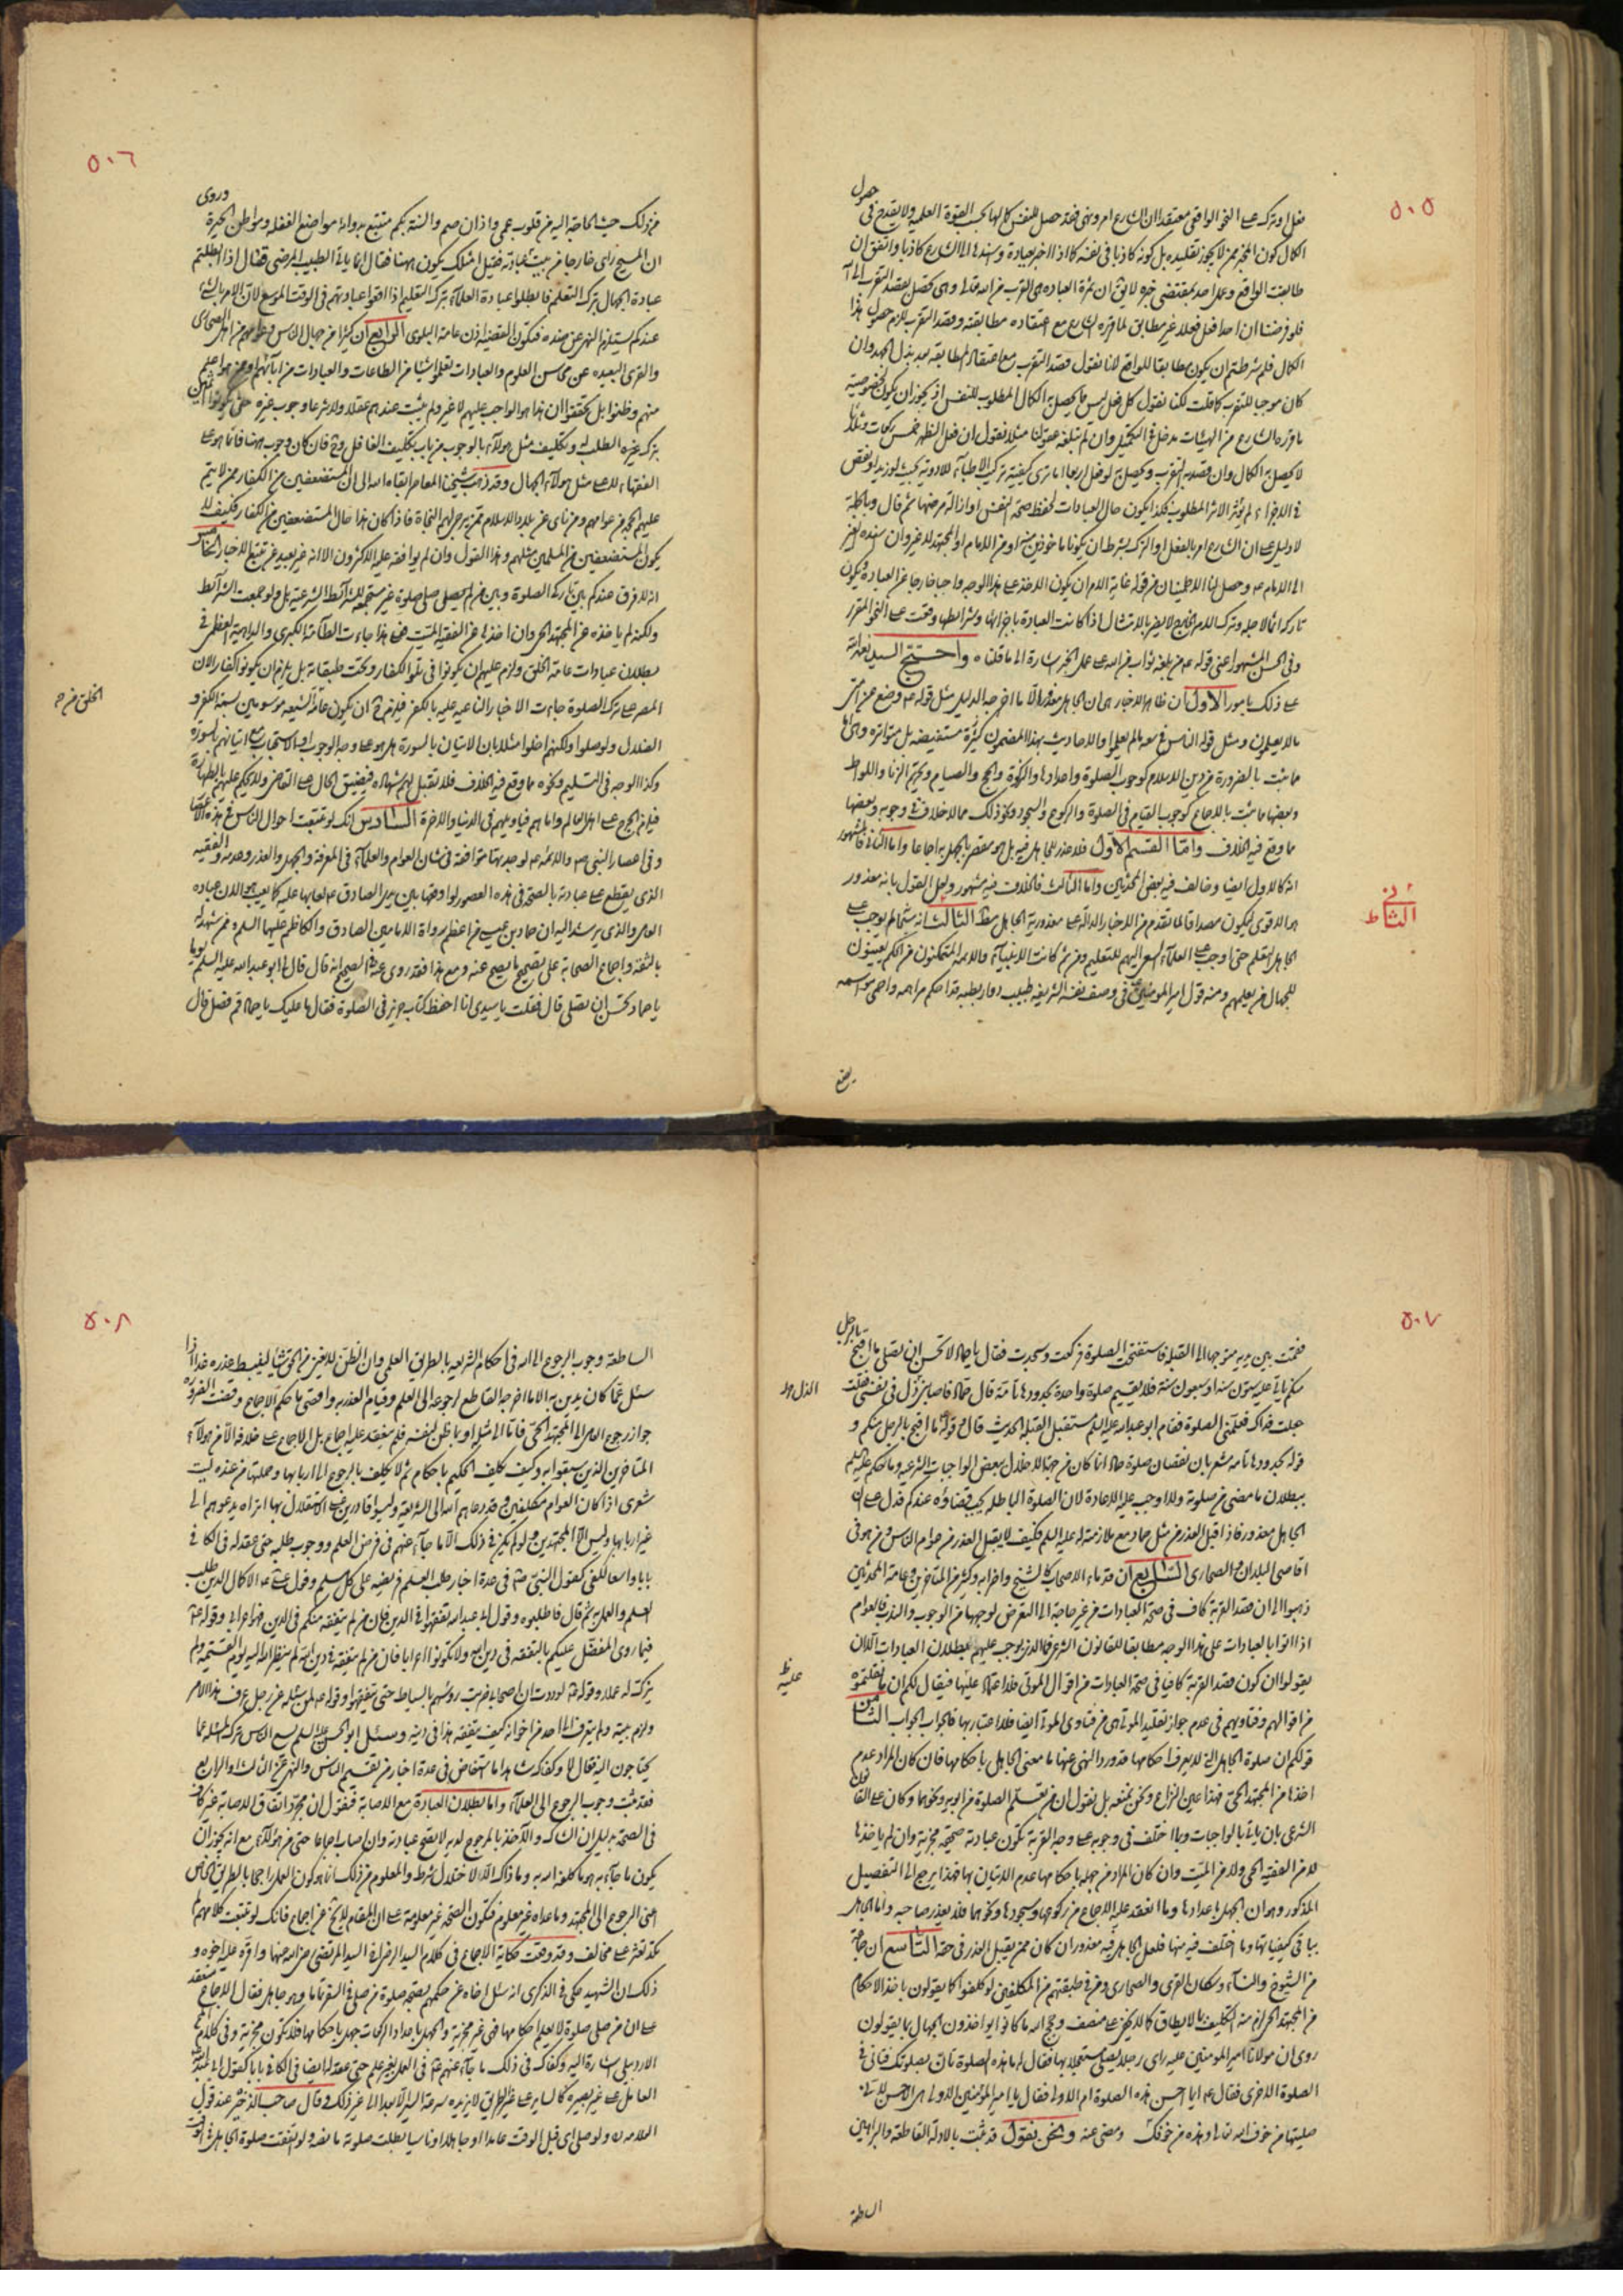 ٥٠٥
حصول
فعل او تركه على النحو الواقعي معتقدا ان الشارع امر ونهى فقد حصل للنفس كمالها بحسب القوة العلمية ولا يقدح في
الكمال كون المخبر ممن لا يجوز تقليده بل كونه كاذبا في نفسه كما اذا اخبر بعبادة وسندها الى الشارع كاذبا واتفق ان
طابقت الواقع وعمل احد بمقتضى خبره لان ثمرة العبادة هي القرب من الله تعالى وهي تحصل بقصد التقرب
فلو فرضنا ان احدا فعل فعلا غير مطابق لما قرره الشارع مع اعتقاده مطابقته وقصد التقرب لزم حصول هذا
الكمال فلم شرطتم ان يكون مطابقا للواقع لانا نقول قصد التقرب مع اعتقاد المطابقة بعد بذل الجهد وان
كان موجبا للتقرب كما قلت لكنا نقول كل فعل ليس مما يحصل به الكمال المطلوب للنفس اذ يجوز ان يكون لخصوصية
ما قرره الشارع من الهيئات مدخل في التكميل وان لم تبلغه عقولنا مثلا نقول ان فعل الظهر خمس ركعات مثلا
لا يحصل به الكمال وان قصد به التقرب ويحصل به لو فعل اربعا اما ترى كيفية تركيب الاطباء للادوية بحيث لو زيد او نقص
في الاجزاء لم يؤثر الاثر المطلوب فكذا يكون حال العبادات لحفظ صحة النفس او ازالة مرضها ثم قال وبالجملة
لا دليل على ان الشارع امر بالفعل او الترك بشرط ان يكونا ماخوذين منه او من الامام او المجتهد لا غير وان سنده لغير
الى الامام ع وحصل لنا الاطمينان من قوله غاية الامر ان يكون الاخذ على هذا الوجه واجبا خارجا عن العبادة ويكون
تاركه اثما لاجله وترك الامر الخارج لا يضر بالامتثال اذا كانت العبادة باجزائها وشرائطها وقعت على النحو المقرر
وفي الحسن المشهور اعني قوله ع من بلغه ثواب من الله على عمل الخبر اشارة الى ما قلناه واحتج السيد نعمة الله
على ذلك بامور الاول ان ظاهر الاخبار هي ان الجاهل معذور الا ما اخرجه الدليل مثل قوله ع وضع عن امتي
ما لا يعلمون ومثل قوله الناس في سعة ما لم يعلموا والاحاديث بهذا المضمون كثيرة مستفيضة بل متواترة
مما يثبت بالضرورة من دين الاسلام كوجوب الصلوة واعدادها والزكوة والحج والصيام وتحريم الزنا واللواط
وبعضها ما يثبت بالاجماع كوجوب القيام في الصلوة والركوع والسجود ونحو ذلك مما لا خلاف في وجوبه وبعضها
ما وقع فيه الخلاف واما القسم الاول فلا عذر للجاهل فيه بل هو مقصر بالجهل به اجماعا واما الثاني فالمشهور
انه كالاول ايضا وخالف فيه بعض المحدثين واما الثالث فالخلاف فيه مشهور ولعل القول بانه معذور
هو الاقوى ليكون مصداقا لما تقدم من الاخبار الدالة على معذورية الجاهل مطلقا الثالث انه كما لم يوجب على
الجاهل التعلم حتى اوجب على العلماء السعي اليهم للتعليم ومن ثم كانت الانبياء والائمة المتمكنون من الحكم يعينون
للجهال من يعلمهم ومنه قول امير المؤمنين ع في وصف نفسه الشريفة طبيب دوار بطبه قد احكم مراهمه واحمى مواسمه
الثاني ط
يضع
٥٠٦
وروى
من ذلك حيث الحاجة اليه من قلوب عمي واذان صم والسنة بكم متتبع بدوائه مواضع الغفلة ومواطن الحيرة
ان المسيح رأى خارجا من بيت فقيل امثلك يكون ههنا فقال انما ياتي الطبيب المرضى فقال اذا ابطلتم
عبادة الجهال بترك التعلم فابطلوا عبادة العلماء بترك التعليم اذا اوقعوا عباداتهم في الوقت الموسع لان الامر بالشيء
عندكم يستلزم النهي عن ضده فتكون القضية اذن عامة البلوى الرابع ان كثيرا من جهال الناس وعوامهم من اهل الصحارى
والقرى البعيدة عن مجالس العلوم والعبادات تعلموا شيئا من الطاعات والعبادات من ابائهم
منهم وظنوا بل تحققوا ان هذا هو الواجب عليهم لا غير ولم يثبت عندهم عقلا ولا شرعا وجوب غيره حتى يكونوا
بترك غيره الطلب له وتكليف مثل هؤلاء بالوجوب من باب تكليف الغافل
الفقهاء لا على مثل هؤلاء الجهال وقد ذهب شيخنا المعاصر ابقاه الله الى ان المستضعفين من الكفار ممن لا يتم
عليهم الحجة من عوامهم ومن ناى عن بلاد الاسلام ممن يرجى لهم النجاة فاذا كان هذا حال المستضعفين من الكفار فكيف لا
يكون المستضعفين من المسلمين مثلهم وهذا القول وان لم يوافقه عليه الاكثرون الا انه غير بعيد من تتبع الاخبار الخامس
انه لا فرق عندكم بين تارك الصلوة وبين من لم يصلي صلوة غير مستجمعة للشرائط الشرعية بل ولو جمعت الشرائط
ولكنه لم ياخذه عن المجتهد الحي وان اخذه عن الفقيه الميت فمن هذا جاءت الطامة الكبرى والداهية العظمى في
بطلان عبادات عامة الخلق ولزم عليهم ان يكونوا في الكفار وتحت طبقاته بل يلزم ان يكونوا كفارا لان
المصر على ترك الصلوة جاءت الاخبار الناعية عليه بالكفر فيلزم ان يكون عامة الشيعة موسومين بسمة الكفر و
الضلال ولو صلوا ولكنهم اخلوا مثلا بان الاتيان بالسورة هل هو على وجه الوجوب او الاستحباب
وكذا الوجه في التسليم ونحوه مما وقع فيه الخلاف فلا تقبل لهم شهادة فيضيق الحال على القاضي ولا يحكم عليهم بالطهارة
فيلزم الحرج على اهل العالم واما هم فيا ويلهم في الدنيا والاخرة السادس انك لو تتبعت احوال الناس في هذه الاعصار
وفي اعصار النبي ص والائمة ع لوجدتها متوافقة في شان العوام والعلماء في المعرفة والجهل والعذر وعدمه والفقيه
الذي يقطع على عبادته بالصحة في هذه العصور لو اوقعها بين يدي الصادق ع لعابها عليه كما يعيب هو الان عبادة
العوام والذي يرشد اليه ان حماد بن عيسى من اعظم رواة الامامين الصادق والكاظم عليهما السلام
بالثقة واجماع الصحابة على تصحيح ما يصح عنه ومع هذا فقد روى عنه في الصحيح انه قال قال لي ابو عبد الله عليه السلام يوما
يا حماد تحسن ان تصلي قال فقلت يا سيدي انا احفظ كتاب حريز في الصلوة فقال لا عليك يا حماد قم فصل قال
٥٠٧
بالرجل
فقمت بين يديه متوجها الى القبلة فاستفتحت الصلوة فركعت وسجدت فقال يا حماد لا تحسن ان تصلي ما اقبح
منكم ياتي عليه ستون سنة او سبعون سنة فلا يقيم صلوة واحدة بحدودها تامة قال حماد فاصابني الذل في نفسي فقلت
جعلت فداك فعلمني الصلوة فقام ابو عبد الله عليه السلم مستقبل القبلة الحديث قال قوله ما اقبح بالرجل منكم و
قوله بحدودها تامة مشعر بان نقصان صلوة حماد انما كان من جهة الاخلال ببعض الواجبات الشرعية وما حكم عليه السلم
ببطلان ما مضى من صلوته ولا اوجب عليه الاعادة لان الصلوة الباطلة يجب قضاؤه عندكم فدل على ان
الجاهل معذور فاذا قبل العذر من مثل حماد مع ملازمته له عليه السلم فكيف لا يقبل العذر من عوام الناس ومن هو في
اقاصي البلدان والصحارى السابع ان قدماء الاصحاب كالشيخ واضرابه وكثير من المتاخرين وعامة المحدثين
ذهبوا الى ان قصد القربة كاف في صحة العبادات من غير حاجة الى التعرض لوجهها من الوجوب والندب فالعوام
اذا اتوا بالعبادات على هذا الوجه مطابقا للقانون الشرعي فما الذي يوجب عليهم بطلان العبادات الا ان
يقولوا ان كون قصد القربة كافيا في صحة العبادات من اقوال الموتى فلا اعتماد عليها فيقال لكم ان ما نقلتموه
من اقوالهم وفتاويهم في عدم جواز تقليد الموتى هي من فتاوى الموتى ايضا فلا اعتبار بها فالجواب الجواب الثامن
قولكم ان صلوة الجاهل التي لا يعرف احكامها قد ورد النهي عنها ما معنى الجاهل باحكامها فان كان المراد عدم
اخذها من المجتهد الحي فهذا عين النزاع ونحن نمنعه بل نقول ان من تعلم الصلوة من ابويه ونحوهما وكان على القانون
الشرعي بان ياتي بالواجبات وبما اختلف في وجوبه على وجه القربة تكون عبادته صحيحة مجزية وان لم ياخذها
لا من الفقيه الحي ولا من الميت وان كان المراد من جهله باحكامها عدم الاتيان بها فهذا يرجع الى التفصيل
المذكور وهو ان الجهل باعدادها وما انعقد عليه الاجماع من ركوعها وسجودها ونحوهما فلا يعذر صاحبه واما الجاهل
بباقي كيفياتها وما اختلف فيه منها فلعل الجاهل فيه معذور ان كان ممن يقبل العذر في حقه التاسع ان حاجة
من الشيوخ والنساء وسكان القرى والصحارى ومن في طبقتهم من المكلفين لو كلفوا كما يقولون باخذ الاحكام
من المجتهد الحي لزم منه التكليف بما لا يطاق كما لا يخفى على منصف وحجج الله ما كانوا يواخذون الجهال بما يقولون
روى ان مولانا امير المؤمنين عليه رأى رجلا يصلي مستعجلا بها فقال له ما هذه الصلوة تان بصلوتك فتانى في
الصلوة الاخرى فقال ع ايما احسن هذه الصلوة ام الاولى فقال يا امير المؤمنين الاولى هي الاحسن لاني
صليتها من خوف الله تعالى وهذه من خوفك ومضى عنه ونحن نقول قد ثبت بالادلة القاطعة والبراهين
الذل ظ
عليه ظ
الساطعة
٥٠٨
الساطعة وجوب الرجوع الى الله في احكام الشريعة بالطريق العلمي وان الظن لا يغني من الحق شيئا لينبسط عذره غدا اذا
سئل عما كان يدين به الا ما اخرجه القاطع لرجوعه الى العلم وقيام العذر به واقصى ما حكم الاجماع وقضت الضرورة
جواز رجوع العوام الى المجتهد الحي فاما الى مثله او ما ظن لنفسه فلم ينعقد عليه اجماع بل الاجماع على خلافه الا من هؤلاء
المتاخرين الذين سبقوا به وكيف يكلف الحكيم باحكام ثم لا يكلف بالرجوع الى اربابها وحملتها من عنده ليت
شعري اذا كان العوام مكلفين وقد دعاهم الله الى الشريعة وليسوا قادرين على الاستقلال بها اتراه يدعوهم الى
غير اربابها وليس الا المجتهدين ولو لم يكن في ذلك الا ما جاء عنهم في فرض العلم ووجوب طلبه حتى عقد له في الكافي
بابا واسعا لكفى كقول النبي ص في عدة اخبار طلب العلم فريضة على كل مسلم وقول علي ع الا كمال الدين طلب
العلم والعمل به ثم قال فاطلبوه وقول ابي عبد الله تفقهوا في الدين فان من لم يتفقه منكم في الدين فهو اعرابي وقوله ع
فيما روى المفضل عليكم بالتفقه في دين الله ولا تكونوا اعرابا فان من لم يتفقه في دين الله لم ينظر الله اليه يوم القيمة ولم
يزك له عملا وقوله ع لوددت ان اصحابي ضربت رؤسهم بالسياط حتى يتفقهوا وقوله ع لمن سئله عن رجل عرف هذا الامر
ولزم بيته ولم يتعرف الى احد من اخوانه كيف يتفقه هذا في دينه وسئل ابو الحسن عليه السلم يسع الناس ترك المسئلة عما
يحتاجون اليه فقال لا وكفاك شاهدا ما استفاض في عدة اخبار من تقسيم الناس والنهي عن الثالث والرابع
فقد ثبت وجوب الرجوع الى العلماء واما بطلان العبادة مع الاصابة فنقول ان مجرد اتفاق الاصابة غير كاف
في الصحة بدليل ان الشاك والاخذ بالمرجوح لديه لا تصح عبادته وان اصاب اجماعا حتى من هؤلاء مع انه يجوز ان
يكون ما جاء به هو ما كلفه الله به وما ذاك الا لاختلال شرط والمعلوم من ذلك انما هو كون العمل راجحا بالطريق الخاص
اعني الرجوع الى المجتهد وما عداه غير معلوم فتكون الصحة غير معلومة على ان المقام لا يخ عن اجماع فانك لو تتبعت كلامهم لم
تكد تعثر على مخالف وقد وقعت حكاية الاجماع في كلام السيد الرضي والسيد المرتضى رضي الله عنهما واقره عليه اخوه و
ذلك ان الشهيد حكى في الذكرى انه سئل اخاه عن حكمهم بصحة صلوة من صلى في السفر تاما وهو جاهل فقال الاجماع منعقد
على ان من صلى صلوة لا يعلم احكامها فهي غير مجزية والجهل باعداد الركعات جهل باحكامها فلا تكون مجزية وفي كلام
الاردبيلي اشارة اليه وكفاك في ذلك ما جاء عنهم ع في العمل بغير علم حتى عقد له ايضا في الكافي بابا كقول ابي عبد الله
العامل على غير بصيرة كالسائر على غير الطريق لا يزيده سرعة السير الا بعدا الى غير ذلك وقال صاحب الذخيرة عند قول
العلامة ره ولو صلى اي قبل الوقت عامدا او جاهلا او ناسيا بطلت صلوته ما لفظه ولو اتفقت صلوة الجاهل في الوقت
الخلق من ح